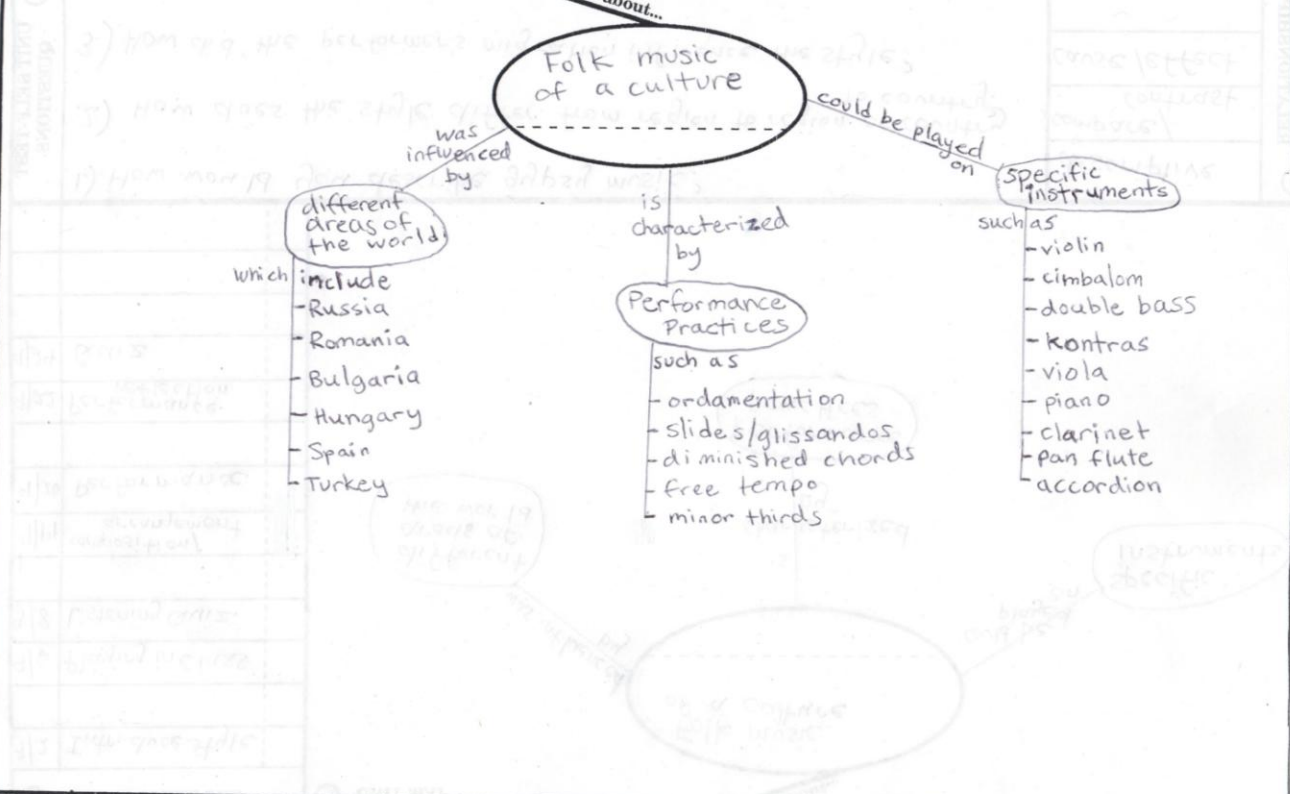 about...
Folk music
of a culture
was
influenced
by
different
areas of
the world
which include
Russia
Romania
Bulgaria
Hungary
Spain
Turkey
is
characterized
by
Performance
Practices
such as
ordamentation
slides/glissandos
diminished chords
free tempo
minor thirds
could be played
on
specific
instruments
such as
violin
cimbalom
double bass
kontras
viola
piano
clarinet
pan flute
accordion